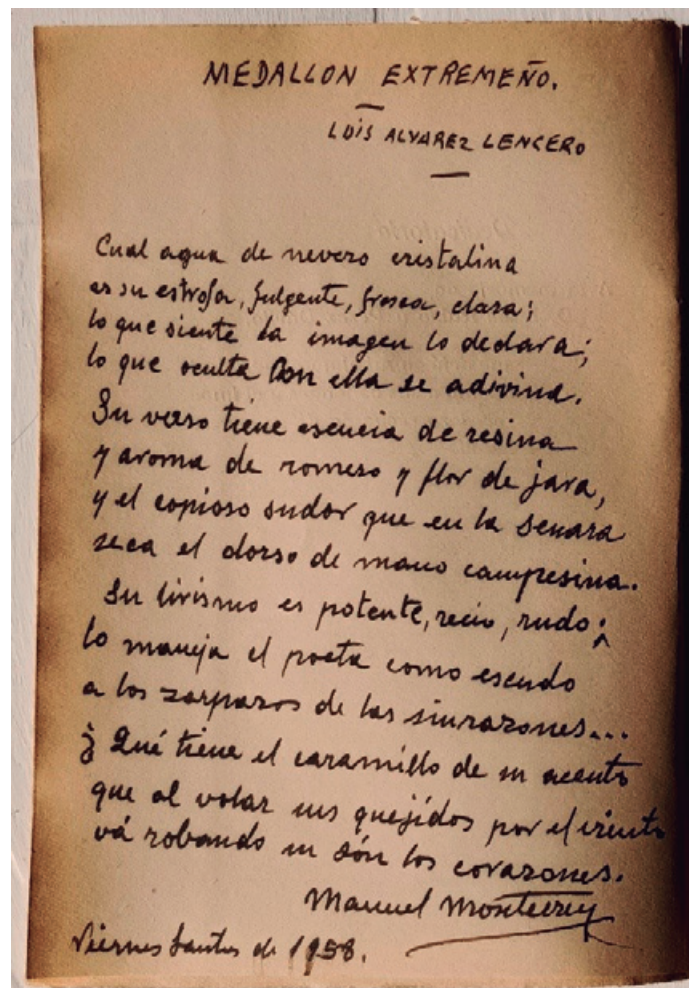 MEDALLON EXTREMEÑO.
LUIS ALVAREZ LENCERO
Cual agua de nevero cristalina
es su estrofa, fulgente, fresca, clara;
lo que siente la imagen lo declara;
lo que oculta con ella se adivina.
Su verso tiene esencia de resina
y aroma de romero y flor de jara,
y el copioso sudor que en la senara
seca el dorso de mano campesina.
Su lirismo es potente, recio, rudo;
lo maneja el poeta como escudo
a los zarpazos de las sinrazones...
¿Qué tiene el caramillo de su acento
que al volar sus quejidos por el viento
vá robando su són los corazones.
Manuel Monterrey
Viernes Santo de 1958.